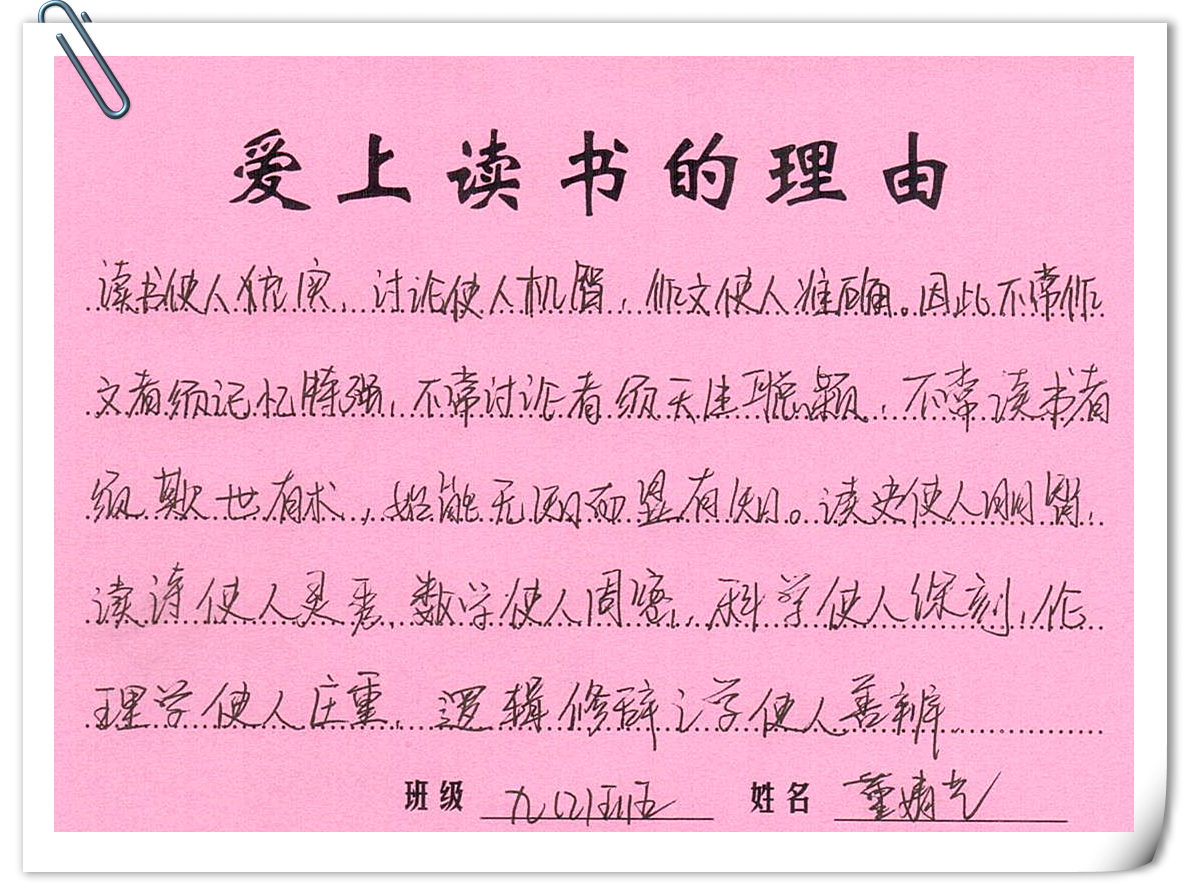 爱上读书的理由
读书使人充实，讨论使人机智，作文使人准确。因此不常作
文者须记忆特强，不常讨论者须天生聪颖，不常读书者
须欺世有术，始能无知而显有知。读史使人明智，
读诗使人灵秀，数学使人周密，科学使人深刻，伦
理学使人庄重，逻辑修辞之学使人善辨
班级 九（2）班 姓名 董婧